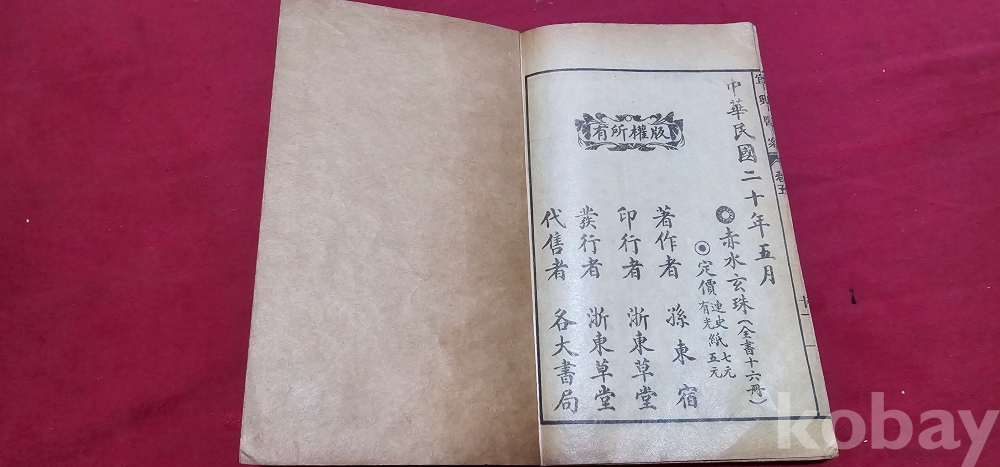 宜興醫案 卷五
十一
中華民國二十年五月
赤水玄珠（全書十六冊）
定價 連史紙七元
有光紙五元
著作者 孫東宿
印行者 浙東草堂
發行者 浙東草堂
代售者 各大書局
有所權版
kobay